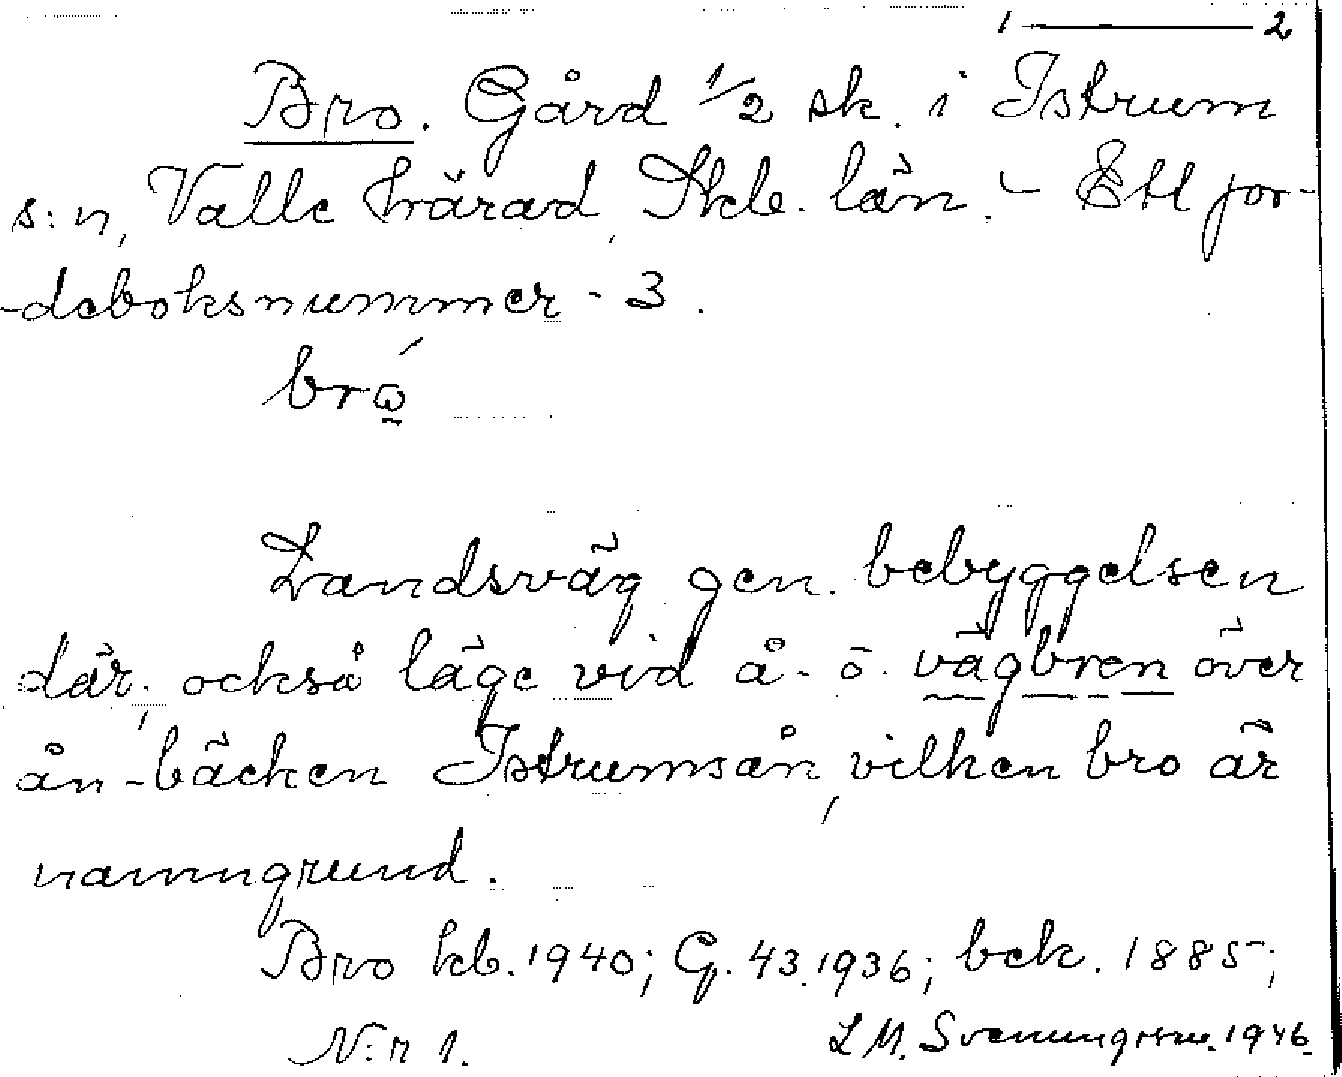 1 — 2
Bro. Gård 1/2 sk. i Istrum
s:n, Valle härad, Skb. län. – Ett jor-
-deboksnummer - 3.
bro̰´
Landsväg gen. bebyggelsen
där, också läge vid å- ö. vägbren över
ån-bäcken Istrumsån, vilken bro är
namngrund.
Bro kb. 1940; G. 43.1936; bek. 1885;
N:r 1.
L M. Svenungsson. 1946.